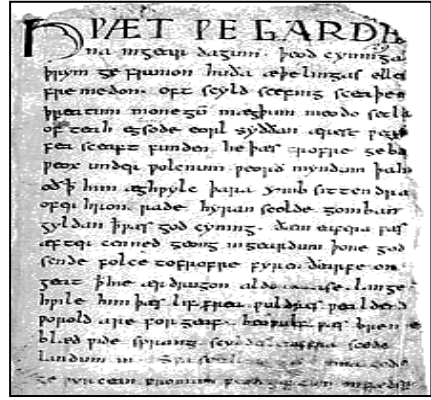 HǷÆT ǷE GARDE
na ingear dagum. þeod cyninga
þrym ge frunon huða æþelingas elle
fremedon. oft scyld scefing sceaþe
þreatum monegū mægþum meodo setla
of teah egsode eorl syððan ærest ƿear
fea sceaft funden he þæs frofre geba
ƿeox under ƿolcnum ƿeorð myndum þah
oð þꝥ him æghƿylc þara ymb sittendra
ofer hron rade hyran scolde gomban
gyldan ꝥ ƿæs god cyning. ðæm eafera ƿæs
æfter cenned geong ingeardum þone god
sende folce tofrofre fyren ðearfe on
geat ꝥ hie ær drugon aldor ase. lange
hƿile him þæs lif frea ƿuldres ƿealdend
ƿorold are for geaf. beoƿulf ƿæs breme
blæd ƿide sprang scyldes eafera scede
landum in. Sƿa sceal guma gode
ge ƿyrcean fromum feoh giftum